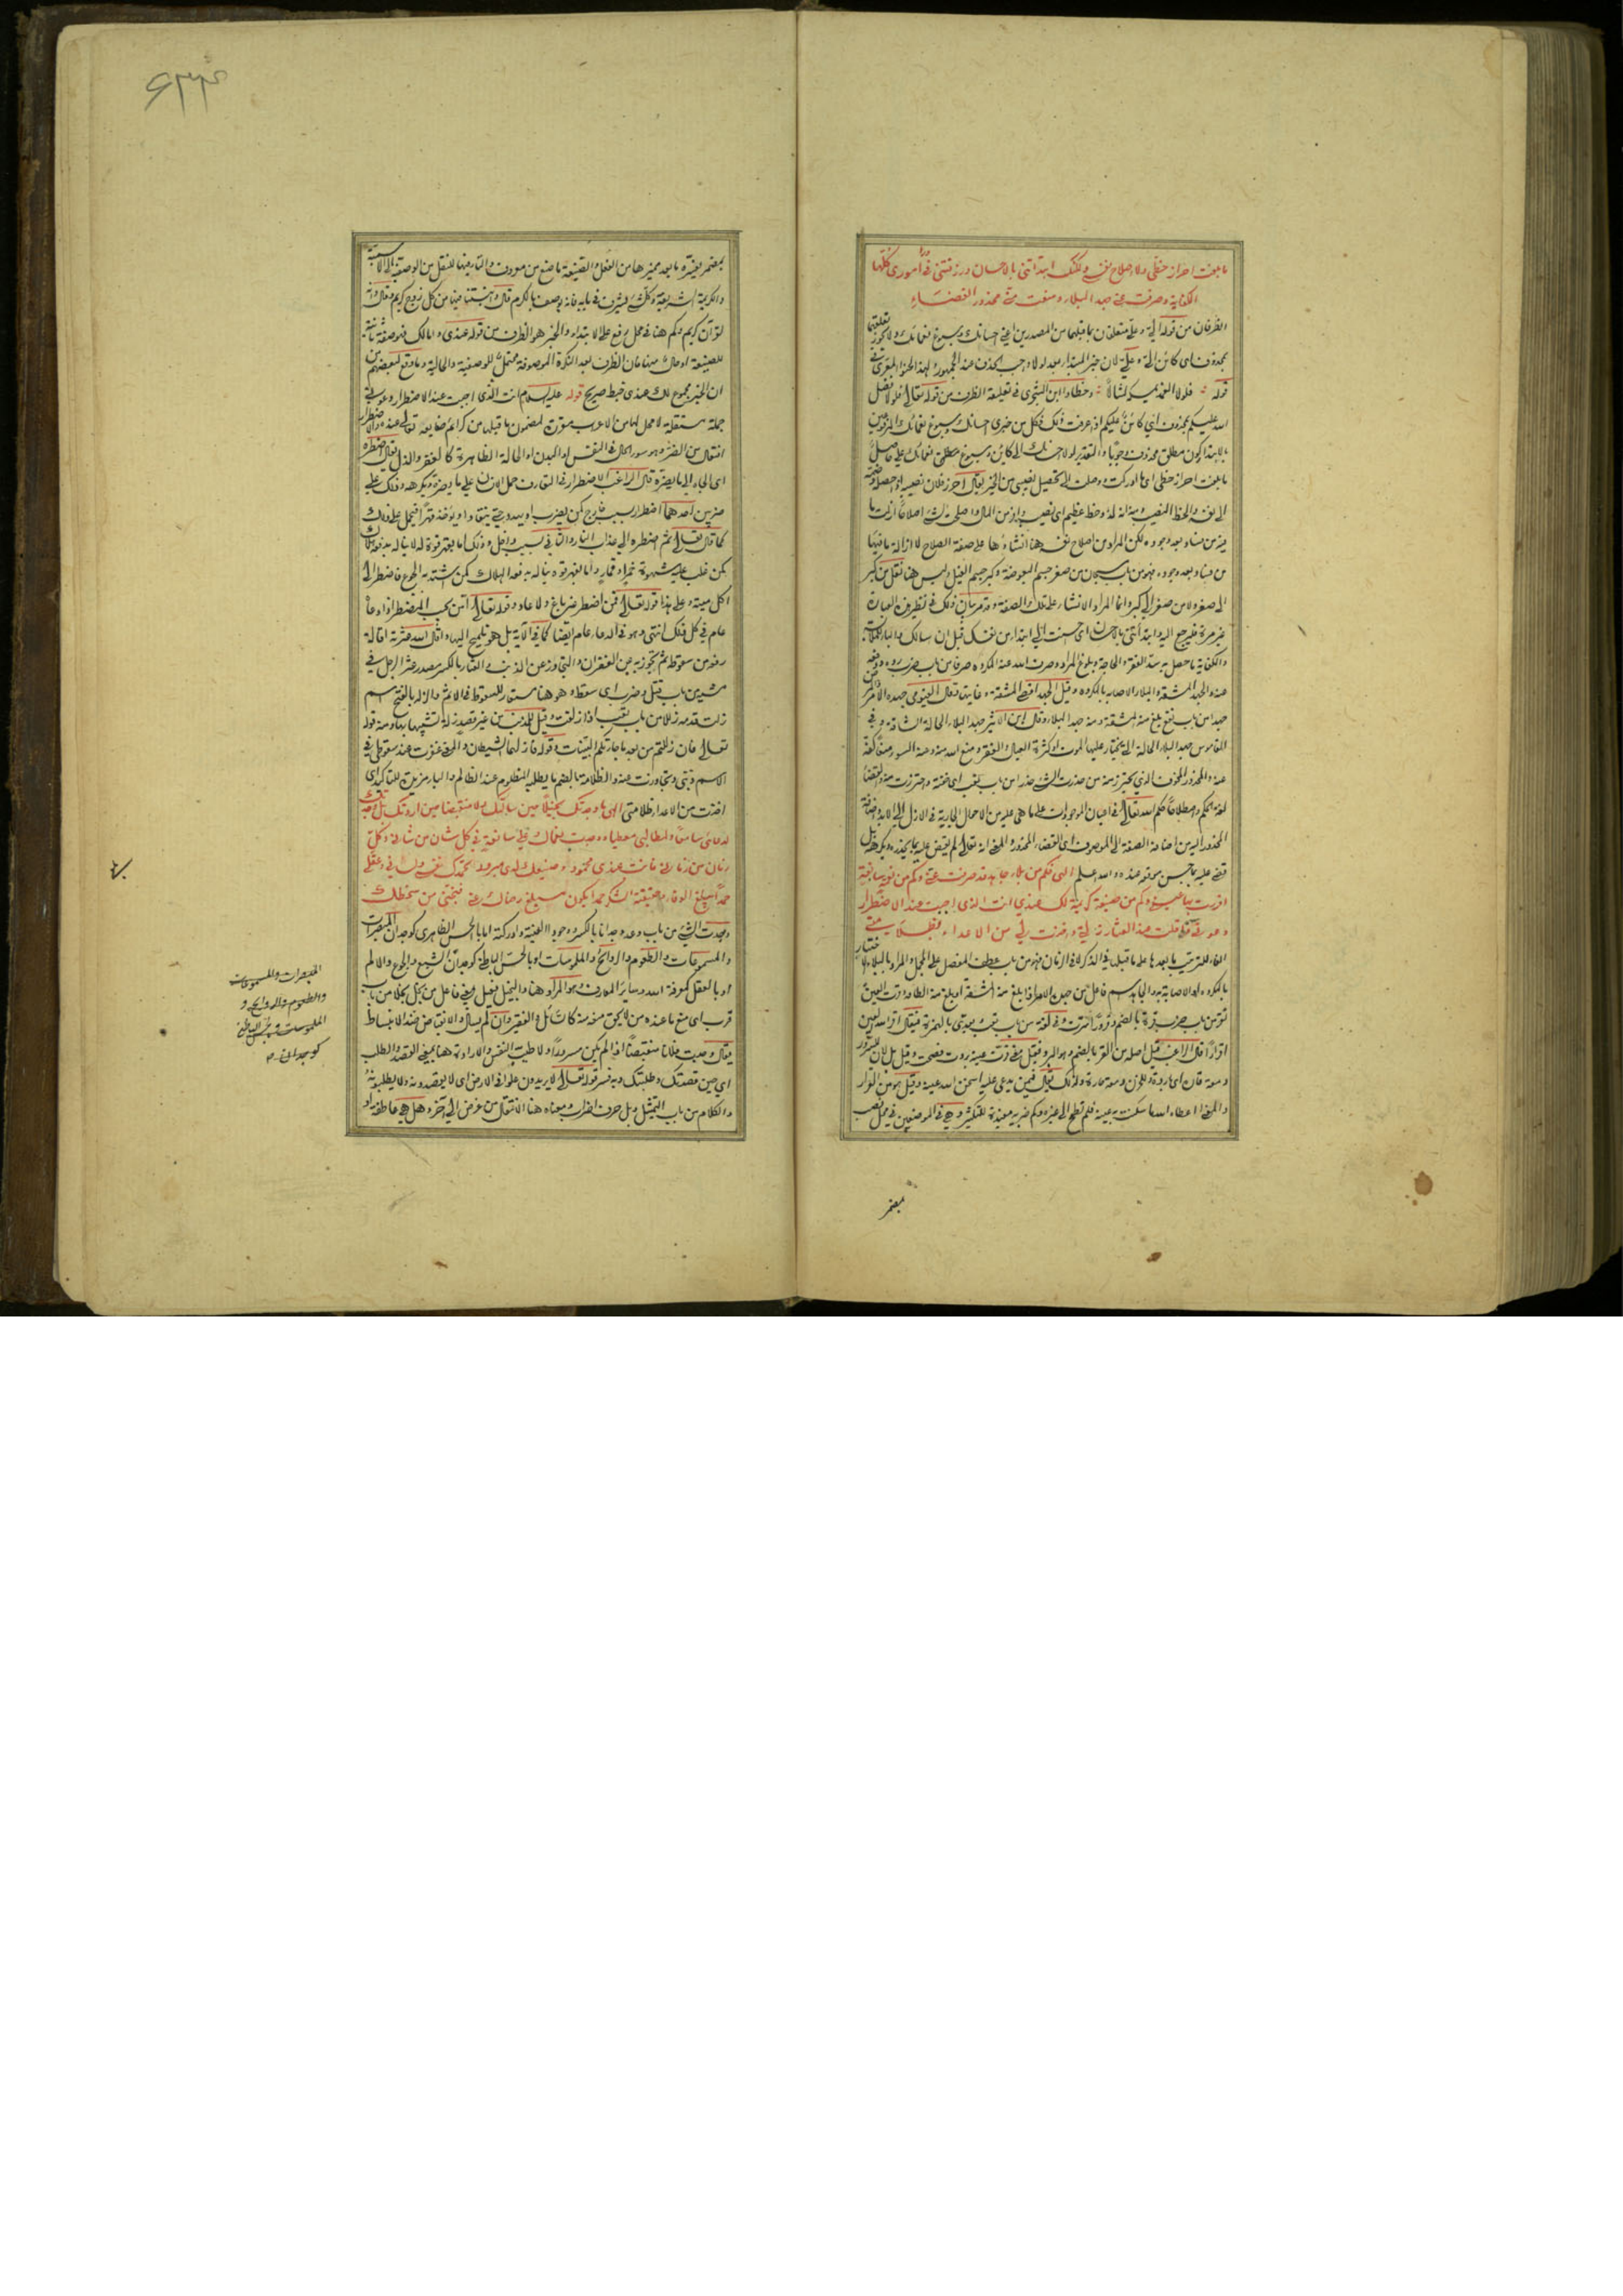 ما بلغت احراز حظي ولا اصلاح نفسي ولكنك ابتدأتني بالاحسان ورزقتني في أموري كلها
الكفاية وصرفت عني جهد البلاء ومنعت مني محذور القضاء
الظرفان من قوله الي وعلي متعلقان بما قبلهما من المصدرين اعني احسانك وسبوغ نعمائك ولا يجوز تعلقهما
بمحذوف اي كائن الي وعلي لان خبر المبتدأ بعد لولا واجب الحذف عند الجمهور ولهذا لحنوا المعري في
قوله فلولا الغمد يمسكه لسالا وخطأوا ابن الشجري في تعليقه الظرف من قوله تعالى ولولا فضل
الله عليكم بمحذوف اي كائن عليكم
بالابتداء كون مطلق محذوف وجوبا والتقدير لولا احسانك الي كائن وسبوغ نعمائك علي حاصل
ما بلغت احراز حظي اي ما ادركت ووصلت الى تحصيل نصيبي من الخير يقال احرز فلان نصيبه اذا حصله وضمه
الى نفسه والحظ النصيب ومنه انه لذو حظ عظيم اي نصيب وافر من المال واصلحت الشيء اصلاحا ازلت ما
فيه من فساد بعد وجوده لكن المراد من اصلاح نفسه هنا انشاؤها على صفة الصلاح لا ازالة ما فيها
من فساد بعد وجوده فهو من باب سبحان من صغر جسم البعوضة وكبر جسم الفيل وليس هنا نقل من كبر
الى صغر ولا من صغر الى كبر وانما المراد الانشاء على تلك الصفة وقد مر بيان ذلك في نظير هذه العبارة
غير مرة فليرجع اليه وابتدأتني بالاحسان اي احسنت الي ابتداء من نفسك قبل ان اسألك
والكفاية ما حصل به سد الفقر والحاجة وبلوغ المراد وصرف الله عنه المكروه صرفا من باب ضرب رده ودفعه
عنه والجهد المشقة والبلاء الاصابة بالمكروه وقيل الجهد اقصى المشقة وغايتها وقال الفيومي جهده الامر
جهدا من باب نفع بلغ منه المشقة ومنه جهد البلاء وقال ابن الاثير جهد البلاء الحالة الشاقة وفي
القاموس جهد البلاء الحالة التي يختار عليها الموت او كثرة العيال والفقر ومنع الله منه وعنه السوء
عنه والمحذور المخوف الذي يحترز منه من حذرت الشيء حذرا من باب تعب اي خفته واحترزت منه والقضاء
لغة الحكم واصطلاحا حكم الله تعالى في اعيان الموجودات على ما هي عليه من الاحوال الجارية في الازل الى الابد واضافة
المحذور اليه من اضافة الصفة الى الموصوف اي القضاء المحذور والمعنى انه تعالى لم يقض عليه بما يحذره ويكرهه بل
قضى عليه بما حسن موقعه عنده والله اعلم الهي فكم من بلاء جاهد قد صرفت عني وكم من نعمة سابغة
اقررت بها عيني وكم من صنيعة كريمة لك عندي انت الذي اجبت عند الاضطرار
دعوتي واقلت عند العثار زلتي واخذت لي من الاعداء بظلامتي
الفاء للترتيب ما بعدها على ما قبلها في الذكر لا في الزمان فهو من باب عطف المفصل على المجمل والمراد بالبلاء
بالمكروه او الاصابة به والجاهد اسم فاعل من جهده الامر اذا بلغ منه المشقة او بلغ منه الطاقة وقرت العين
تقر من باب ضرب قرة بالضم وقرورا بردت سرورا وفي لغة من باب تعب ويعدى بالهمزة فيقال اقر الله العين
اقرارا قال الراغب قيل اصله من القر بالضم وهو البرد فقيل معنى قرت عينه بردت فصحت وقيل بل لان للسرور
دمعة قارة اي باردة وللحزن دمعة حارة ولذلك يقال فيمن يدعى عليه اسخن الله عينه وقيل هو من القرار
والمعنى اعطاه الله ما سكنت به عينه فلم تطمح الى غيره وكم خبرية مفيدة للتكثير وهي في الموضعين في محل نصب
بمضمر
۶۳۴
بمضمر يفسره ما بعد مميزها من الفعل والصنيعة ما صنع من معروف والتاء فيها للنقل من الوصفية الى الاسمية
والكريمة الشريفة وكل شيء يشرف في بابه فانه يوصف بالكرم قال تعالى وانبتنا فيها من كل زوج كريم وقال انه
لقرآن كريم وكم هنا في محل رفع على الابتداء والخبر هو الظرف من قوله عندي واما لك فهو صفة ثانية
للصنيعة او حال منها فان الظرف بعد النكرة الموصوفة محتمل للوصفية والحالية وما وقع لبعضهم من
ان الخبر مجموع لك عندي خبط صريح قوله عليه السلام انت الذي اجبت عند الاضطرار دعوتي
جملة مستقلة لا محل لها من الاعراب مقررة لمضمون ما قبلها من كرائم صنائعه تعالى عنده والاضطرار
افتعال من الضر وهو سوء الحال في النفس او البدن او الحالة الظاهرة كالفقر والذل يقال اضطره
اي الجأه الى ما يضره قال الراغب الاضطرار في التعارف حمل الانسان على ما يضره ويكرهه وذلك على
ضربين احدهما اضطرار بسبب خارج كمن يضرب او يهدد حتى ينقاد او يؤخذ قهرا فيحمل على ذلك
كما قال تعالى ثم اضطره الى عذاب النار والثاني بسبب داخل وذلك اما بقهر قوة له لا يناله بدفعها هلاك
كمن غلب عليه شهوة خمر او قمار واما لقهر قوة يناله بدفعها الهلاك كمن اشتد به الجوع فاضطر الى
اكل ميتة وعلى هذا قوله تعالى فمن اضطر غير باغ ولا عاد وقوله تعالى امن يجيب المضطر اذا دعاه
عام في كل ذلك انتهى وهو في الدعاء عام ايضا كما في الآية بل هو تلميح اليها واقال الله عثرته اقالة
رفعه من سقوطه ثم تجوز به عن الغفران والتجاوز عن الذنب والعثار بالكسر مصدر عثر الرجل في
مشيه من باب قتل وضرب اي سقط وهو هنا مستعار للسقوط في الاثم والزلة بالفتح اسم
زلت قدمه زللا من باب تعب اذا زلقت وقيل للذنب من غير قصد زلة تشبيها بها ومنه قوله
تعالى فان زللتم من بعد ما جاءتكم البينات وقوله فازلهما الشيطان والمعنى عفوت عند سقوطي في
الاثم ذنبي وتجاوزت عنه والظلامة بالضم ما يطلبه المظلوم عند الظالم والباء مزيدة للتأكيد اي
اخذت من الاعداء ظلامتي الهي ما وجدتك بخيلا حين سألتك ولا منقبضا حين اردتك بل وجدتك
لدعائي سامعا ولمطالبي معطيا ووجدت نعماك علي سابغة في كل شان من شاني وكل
زمان من زماني فانت عندي محمود وصنيعك لدي مبرور تحمدك نفسي ولساني وعقلي
حمدا يبلغ الوفاء وحقيقة الشكر حمدا يكون مبلغ رضاك عني فنجني من سخطك
وجدت الشيء من باب وعد وجدانا بالكسر ووجودا الفيته وادركته اما بالحس الظاهري كوجدان المبصرات
والمسموعات والطعوم والروائح والملموسات او بالحس الباطن كوجدان الشبع والجوع والالم
او بالعقل كمعرفة الله وسائر المعارف وهو المراد هنا والبخيل فعيل بمعنى فاعل من بخل بخلا من باب
قرب اي منع ما عنده من لا يحق منعه منه كالسائل والفقير وان لم يسأل والانقباض ضد الانبساط
يقال وجدت فلانا منقبضا اذا لم يكن مسرورا ولا طيب النفس والارادة هنا بمعنى القصد والطلب
اي حين قصدتك وطلبتك وبه فسر قوله تعالى لا يريدون علوا في الارض اي لا يقصدونه ولا يطلبونه
والكلام من باب التمثيل وبل حرف اضراب ومعناه هنا الانتقال من غرض الى آخر وهل هي عاطفة او
المبصرات والمسموعات
والطعوم والروائح و
الملموسات وبالحس الباطن
كوجدان